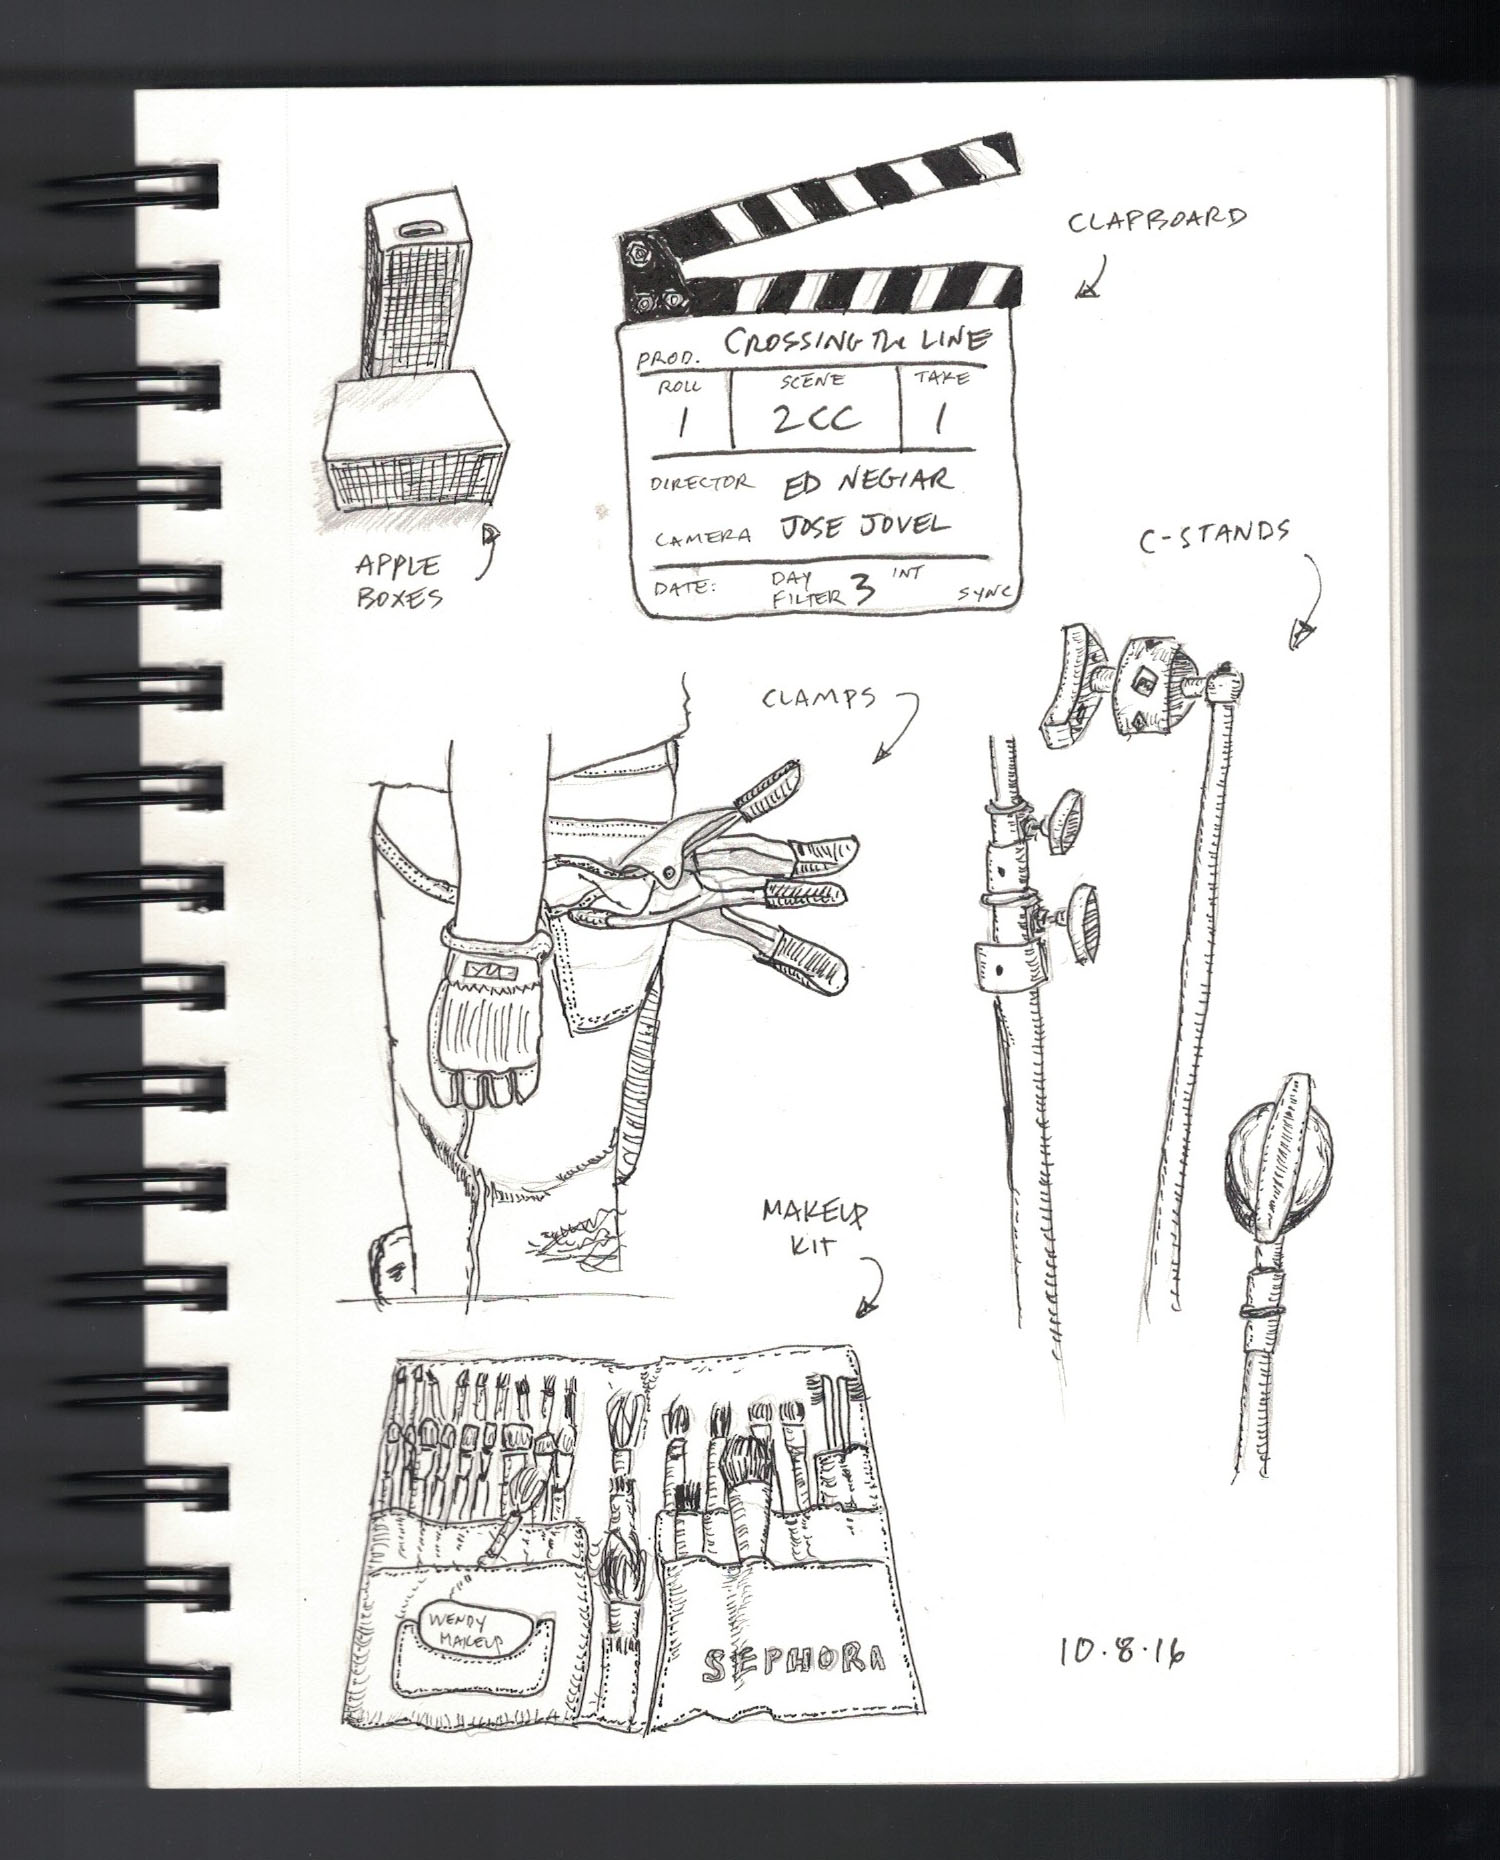 CLAPBOARD
PROD. CROSSING THE LINE
ROLL SCENE TAKE
1 2CC 1
DIRECTOR ED NEGIAR
CAMERA JOSE JOVEL
DATE: DAY INT
FILTER 3 SYNC
APPLE
BOXES
C-STANDS
CLAMPS
MAKEUP
KIT
WENDY
MAKEUP
SEPHORA
10.8.16